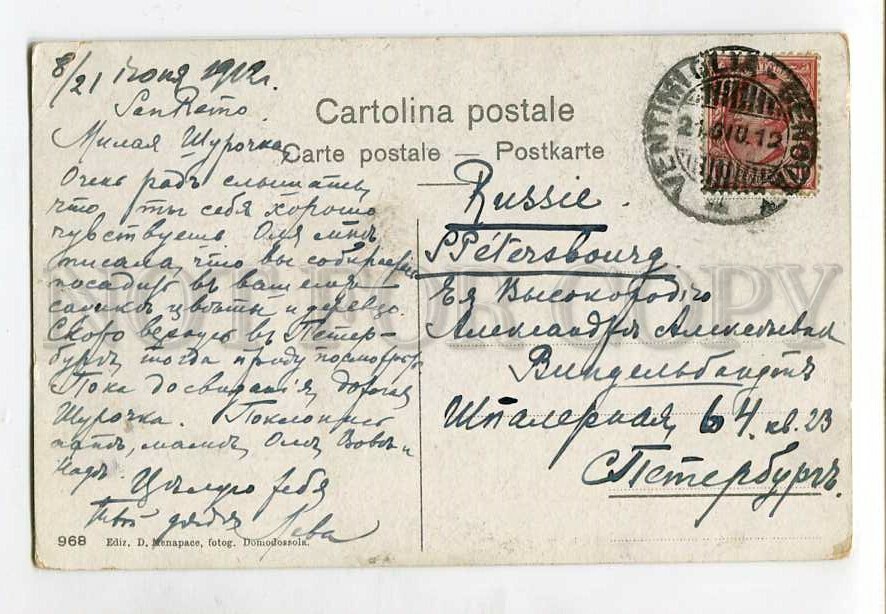 8/21 іюня 1912 г.
San Remo.
Милая Шурочка,
Очень радъ слышать,
что ты себя хорошо
чувствуешь. Оля мнѣ
писала, что вы собираетесь
посадить въ вашемъ
садикѣ цвѣты и деревцо.
Скоро вернусь въ Петер-
бургъ, тогда приду посмотрѣть.
Пока до свиданія, дорогая
Шурочка. Поклонись
папѣ, мамѣ, Олѣ, Вовѣ и
Надѣ.
Цѣлую тебя
Твой дядя Лева
Cartolina postale
Carte postale — Postkarte
VENTIMIGLIA - GENOVA
21.GIU.12
Russie.
S Pétersbourg.
Ея Высокородію
Александрѣ Алексѣевнѣ
Виндельбандтъ
Шпалерная, 64. кв. 23
С Петербургъ.
968 Ediz. D. Menapace, fotog. Domodossola.
NOT FOR COPY